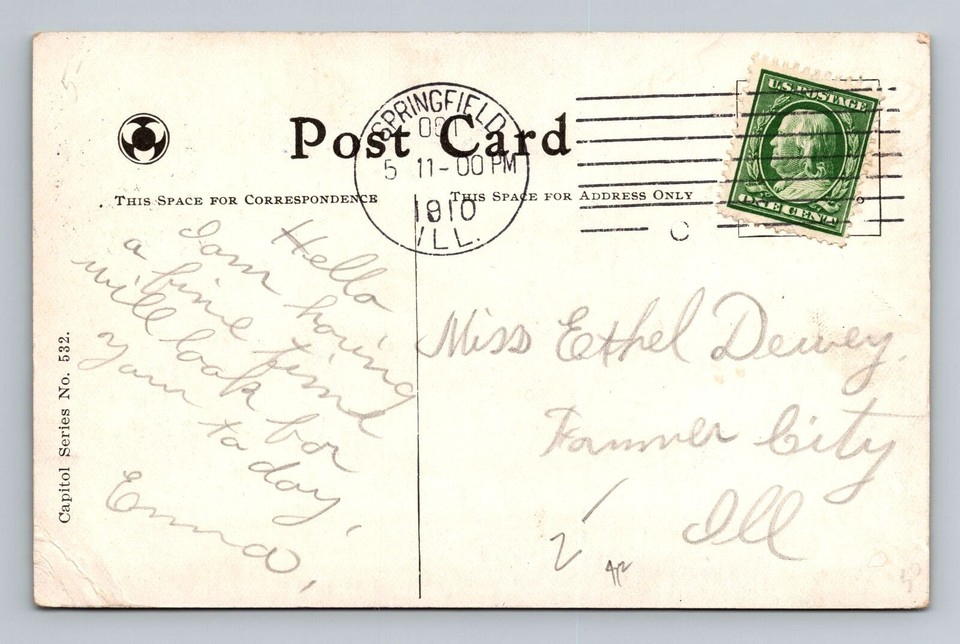 Post Card
SPRINGFIELD
OCT
5 11-00 PM
1910
ILL.
U.S. POSTAGE
ONE CENT
THIS SPACE FOR CORRESPONDENCE
THIS SPACE FOR ADDRESS ONLY
Hello
I am having
a fine time
will look for
you to
day,
Emma,
Miss Ethel Dewey.
Farmer City
Ill
Capitol Series No. 532.